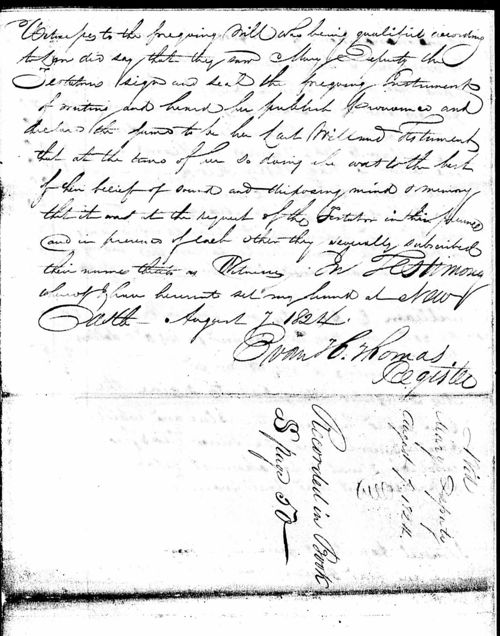 Witnesses to the foregoing Will who being qualified according
to Law did say that they saw Mary Deputy the
Testatrix sign and seal the foregoing Instrument
of writing and heard her publish pronounce and
declare the same to be her last Will and Testament
that at the time of her so doing she was to the best
of their belief of sound and disposing mind & memory
that it was at the request of the Testator in her presence
and in presence of each other they severally subscribed
their names as Witnesses In Testimony
whereof I have hereunto set my hand at New
Castle August 7 1824
Evan H. Thomas
Register
Will
Mary Deputy
August 7th 1824.
Recorded in Book
S page 50